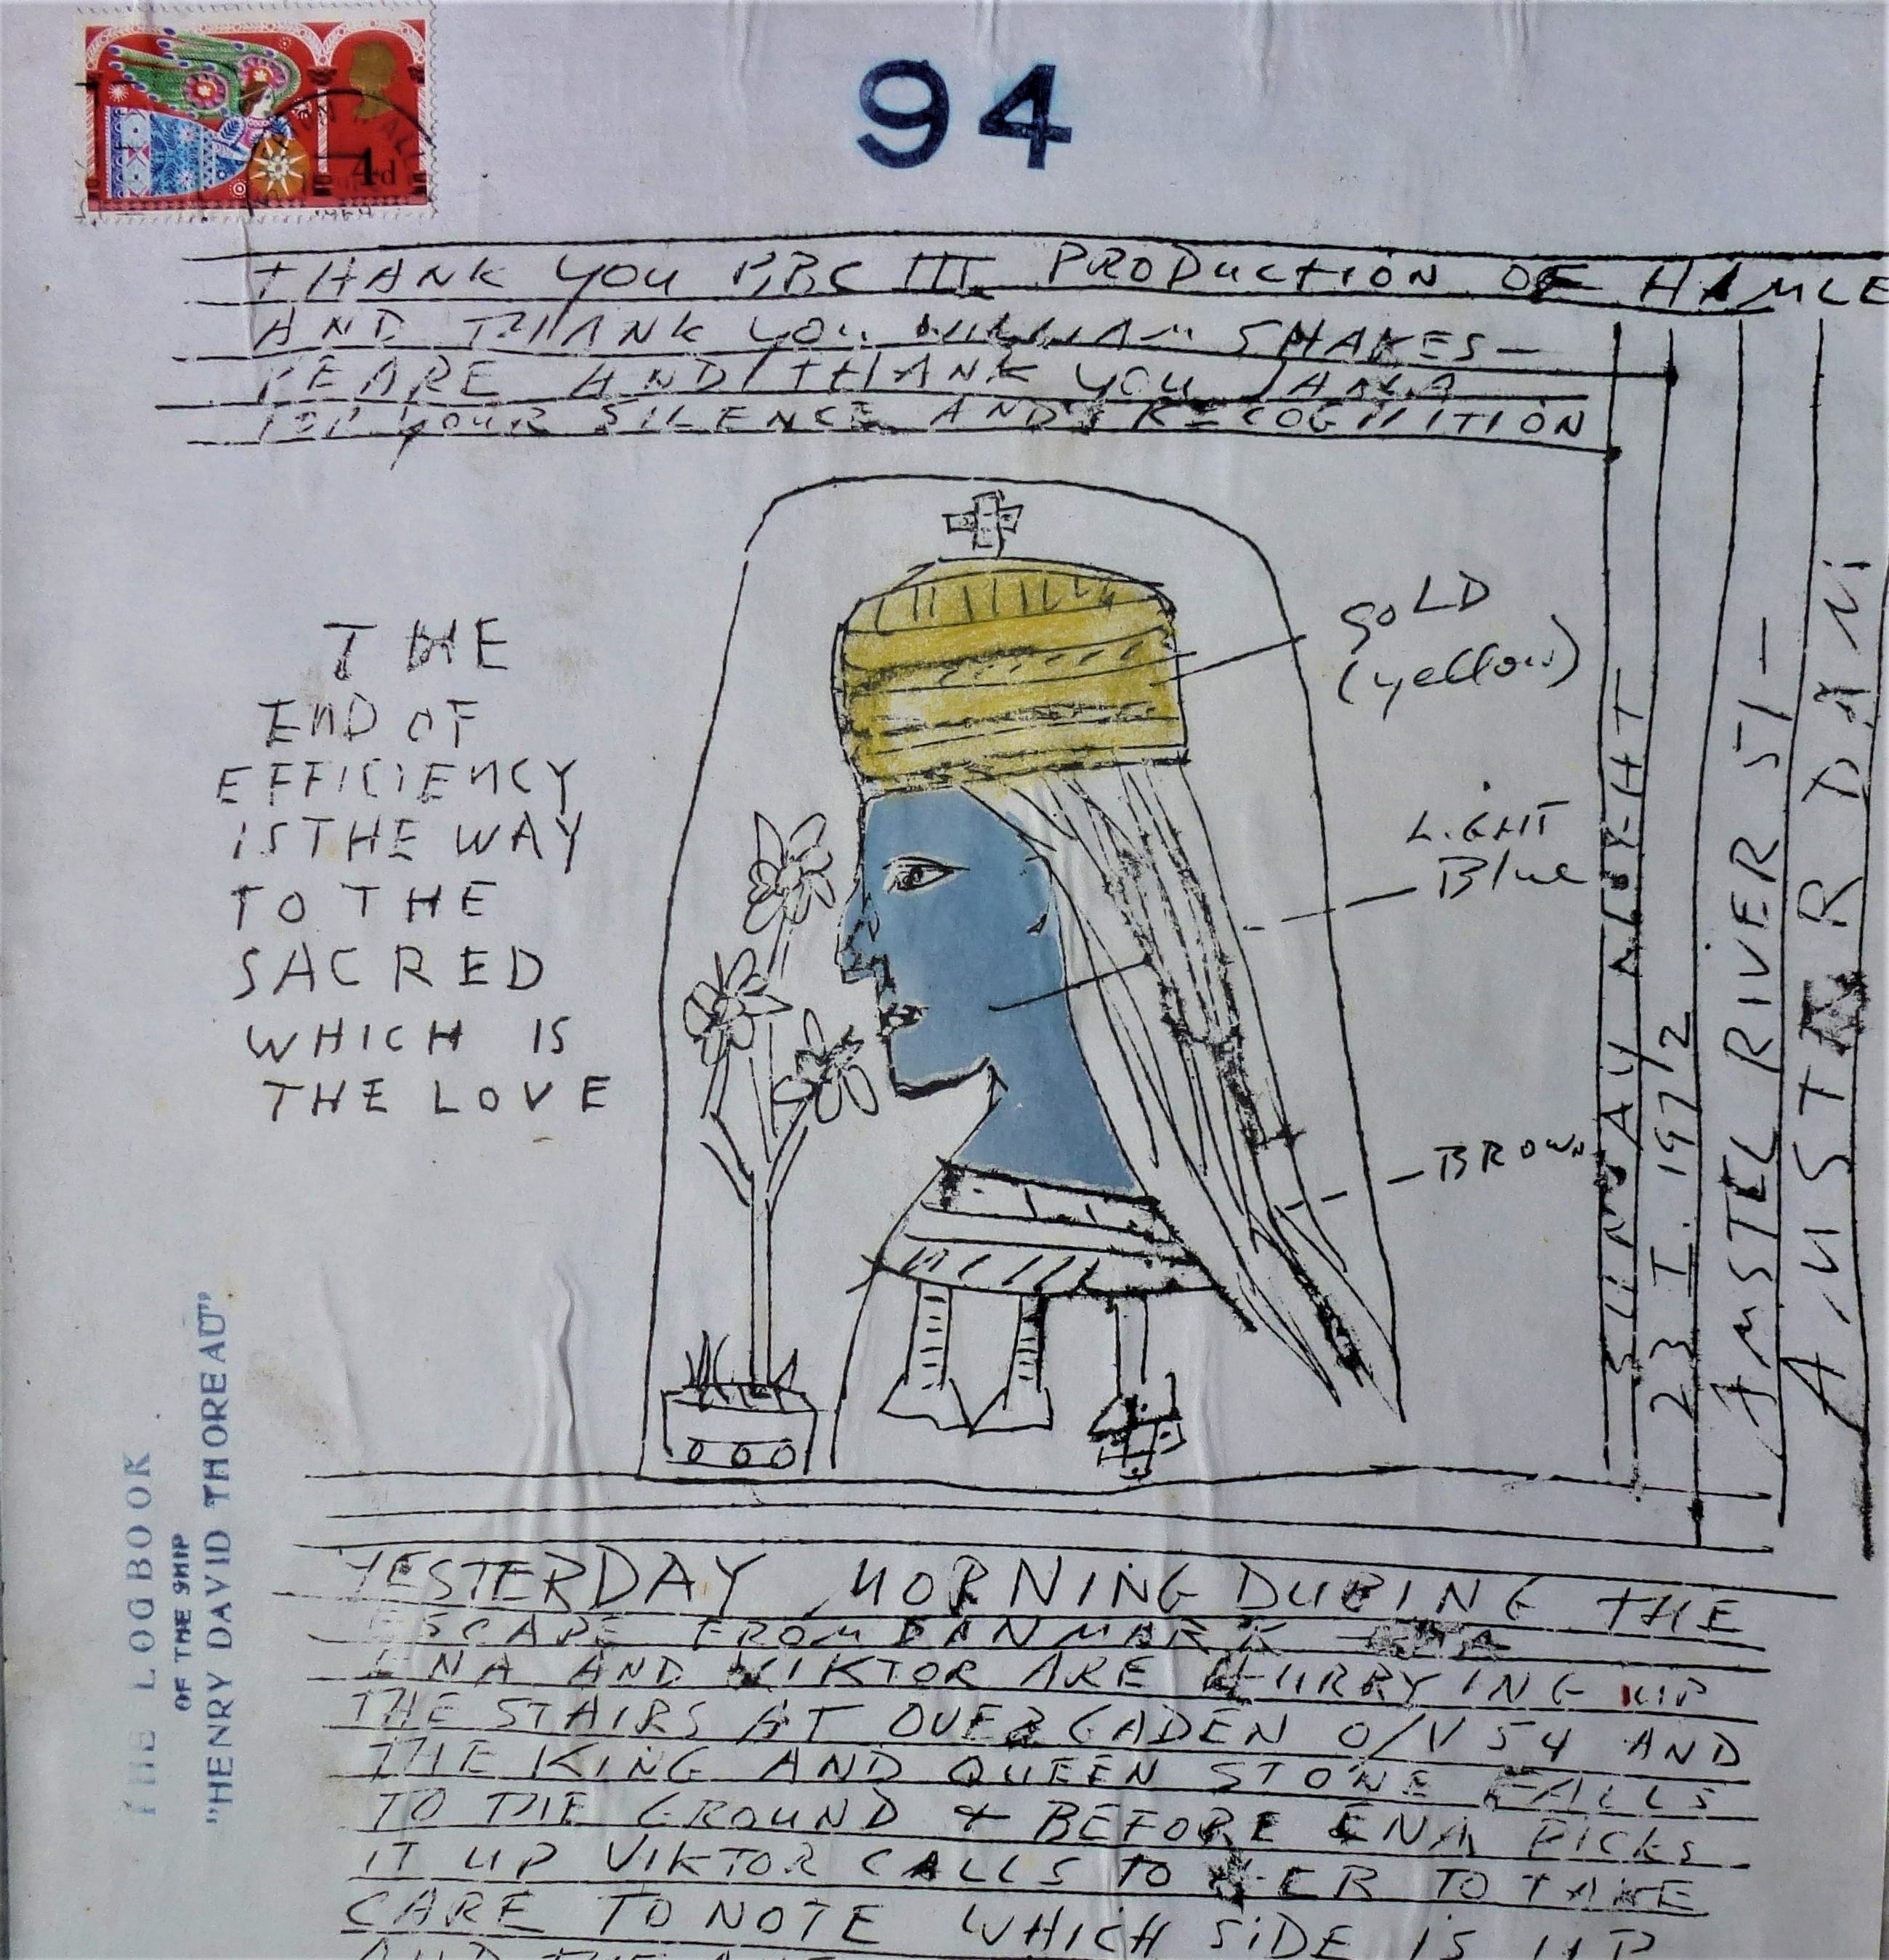 94
4d
THANK YOU BBC III PRODUCTION OF HAMLE
AND THANK YOU WILLIAM SHAKES-
PEARE AND THANK YOU
FOR YOUR SILENCE AND RECOGNITION
THE
END OF
EFFICIENCY
IS THE WAY
TO THE
SACRED
WHICH IS
THE LOVE
GOLD
(yellow)
LIGHT
Blue
BROWN
SUNDAY NIGHT
23 I. 1972
AMSTEL RIVER 51-
AMSTERDAM
THE LOGBOOK
OF THE SHIP
"HENRY DAVID THOREAU"
YESTERDAY MORNING DURING THE
ESCAPE FROM DANMARK
ENA AND VIKTOR ARE HURRYING UP
THE STAIRS AT OVERGADEN O/V 54 AND
THE KING AND QUEEN STONE FALLS
TO THE GROUND & BEFORE ENA PICKS
IT UP VIKTOR CALLS TO HER TO TAKE
CARE TO NOTE WHICH SIDE IS UP
AND THE